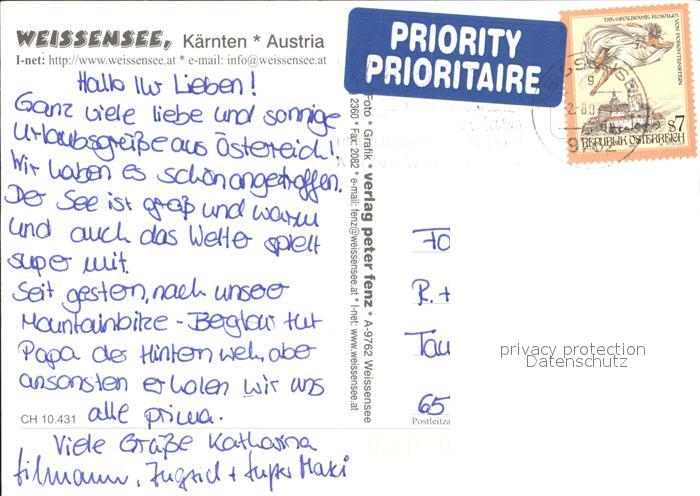 WEISSENSEE, Kärnten * Austria
I-net: http://www.weissensee.at * e-mail: info@weissensee.at
Hallo Ihr Lieben!
Ganz viele liebe und sonnige
Urlaubsgrüße aus Östereich!
Wir haben es schön angetroffen.
Der See ist groß und warm
und auch das Wetter spielt
super mit.
Seit gestern, nach unserer
Mountainbike-Bergtour tut
Papa der Hintern weh, aber
ansonsten erholen wir uns
alle prima.
Viele Grüße Katharina
CH 10.431
Foto * Grafik * verlag peter fenz * A-9762 Weissensee
2360 * Fax: 2082 * e-mail: fenz@weissensee.at * I-net: www.weissensee.at
PRIORITY
PRIORITAIRE
DIE GRAUSAME ROSALIA
VON FORCHTENSTEIN
S7
REPUBLIK ÖSTERREICH
R. +
Tau
65
Postleitza
privacy protection
Datenschutz